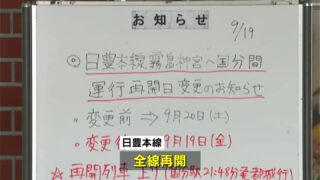 お知らせ
9/19
◎日豊本線霧島神宮~国分間
運行再開日変更のお知らせ
・変更前 ⇒ 9月20日(土)
・変更 9月19日(金)
日豊本線
全線再開
☆再開列車 上り(国分駅21:48分発都城行)